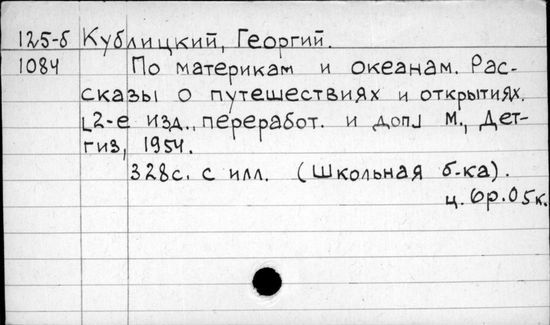 125-б Кублицкий, Георгий.
1084 По материкам и океанам. Рас-
сказы о путешествиях и открытиях.
[2-е изд., переработ. и доп.] М., Дет-
гиз, 1954.
328с. с илл. (Школьная б-ка).
ц. 6р.05к.